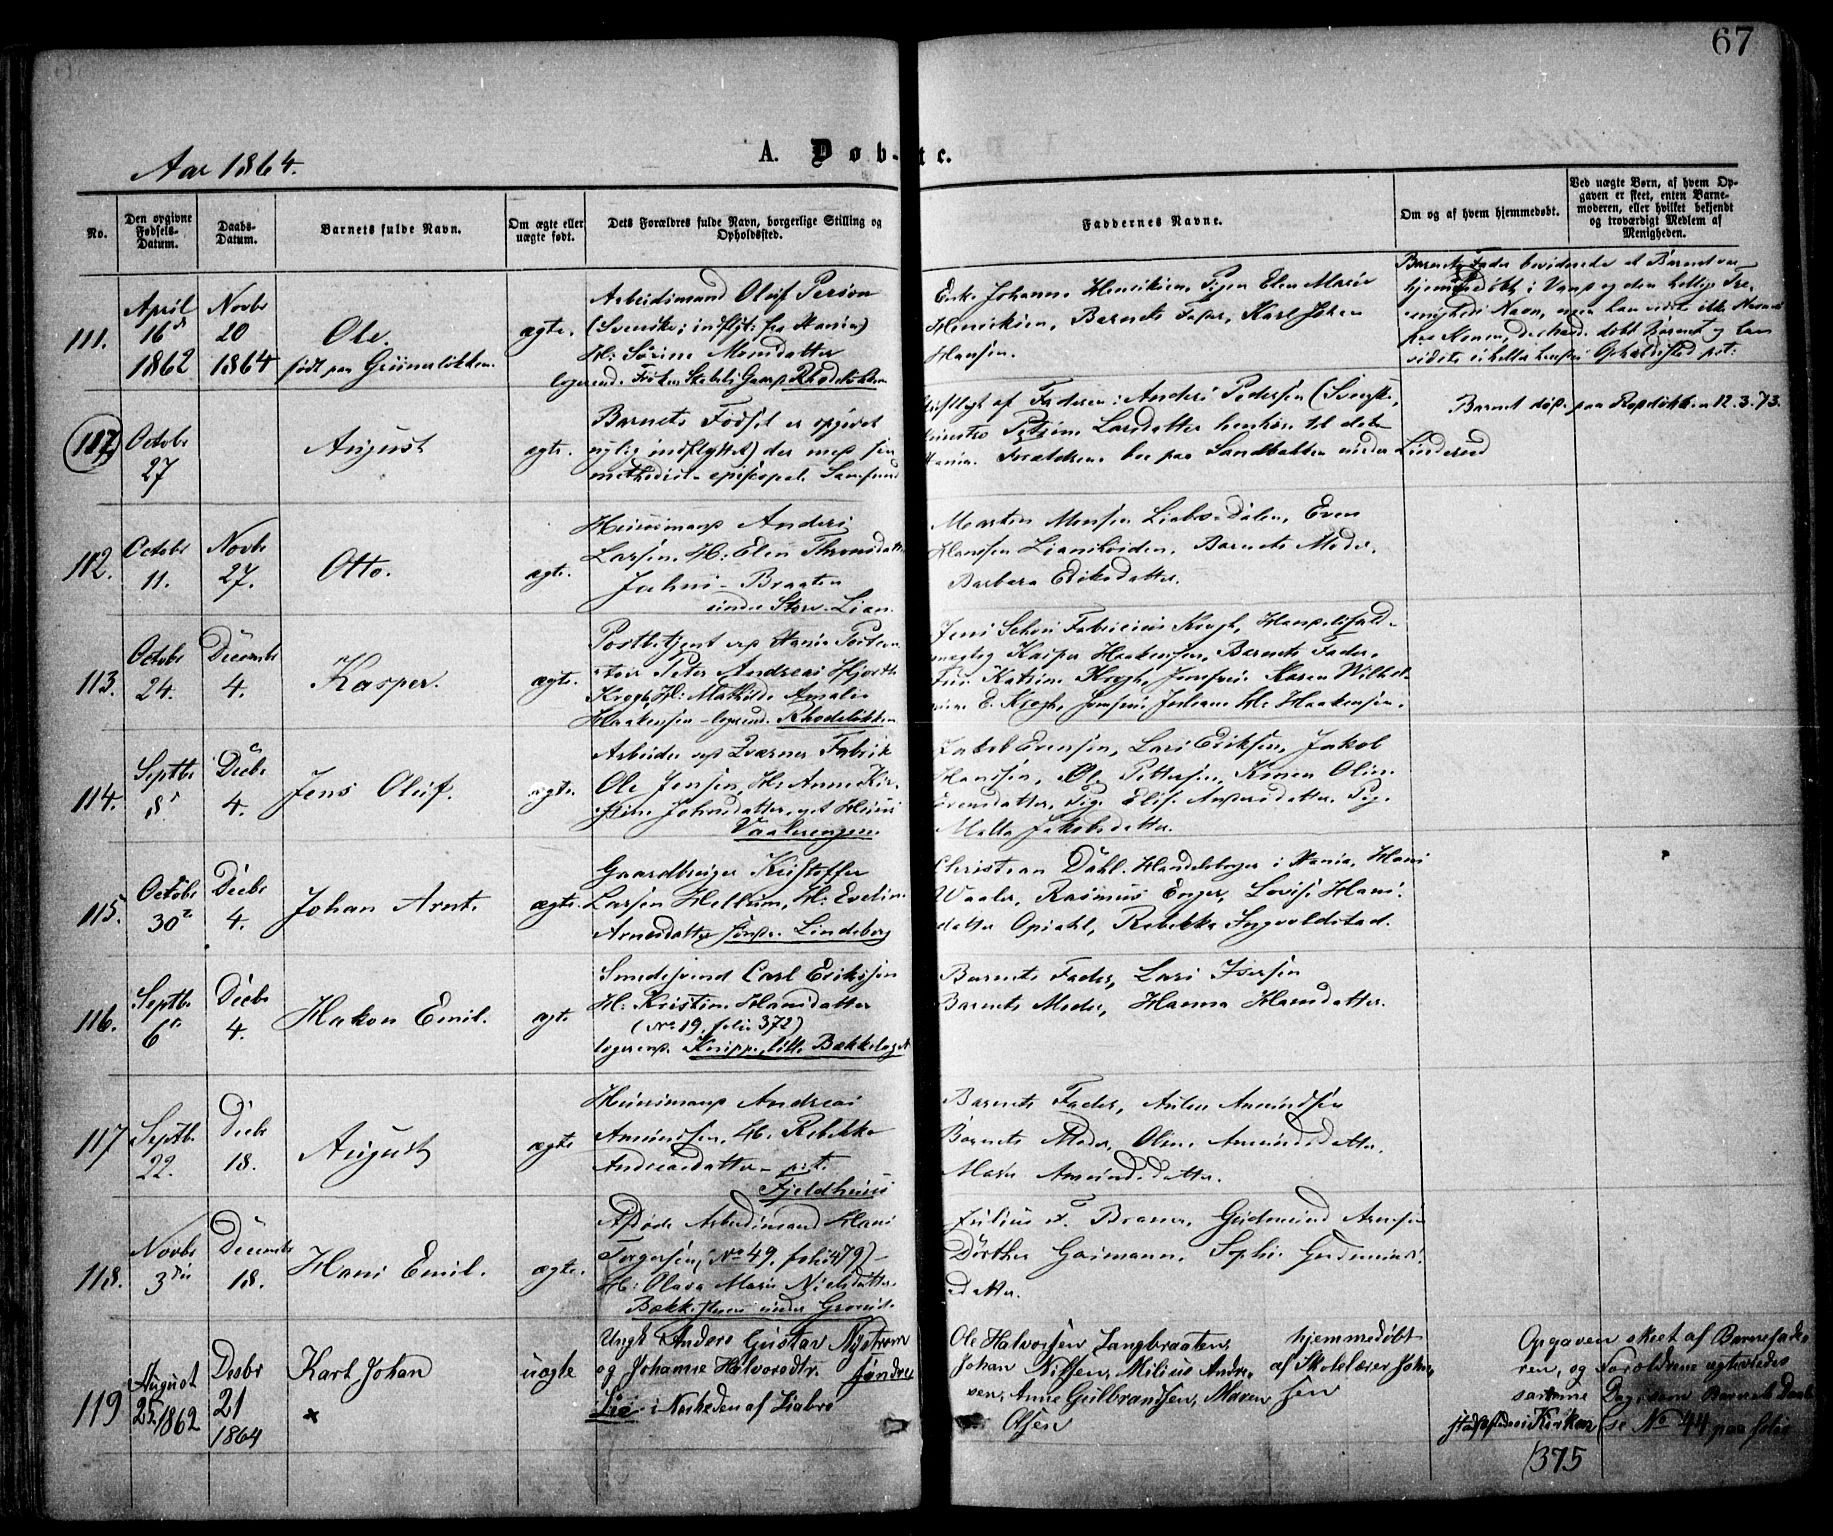 67
Aar 1864.
A. Døb-te.
No.
Den opgivne Fødsels-Datum.
Daabs-Datum.
Barnets fulde Navn.
Om ægte eller uægte født.
Dets Forældres fulde Navn, borgerlige Stilling og Opholdssted.
Faddernes Navne.
Om og af hvem hjemmedøbt.
Ved uægte Børn, af hvem Opgaven er skeet, enten Barnemoderen, eller hvilket bekjendt og troværdigt Medlem af Menigheden.
111.
April
16de
1862
Novbr
20
1864
Ole.
født paa Grünerløkken.
ægte.
Arbeidsmand Oluf Person
(Svenske; indflyt: fra Xania)
H: Sørine Monsdatter
logerende Rhodeløkken
Enke Johanne Henriksen, Pigen Elen Marie
Henriksen, Barnets Fader, Karl Johan
Hansen.
Barnets Fader bevidnede at Barnet var
107.
Octobr
27
August
ægte.
Barnets Fødsel er opgivet
nylig indflyttet) der med sin
methodist-episcopale Samfund
af Faderen: Anders Pedersen (Svensk,
Larsdatter henhøre til det
Xania. Forældrene boe paa Sandbakken under Linderud
Barnet døpt paa Rodeløkken 12.3.73.
112.
Octobr
11.
Novbr
27.
Otto.
ægte.
Huusmand Anders
Larsen, H: Elen Thronsdatter
Jahns-Braaten
under Store-Lian.
Morten Monsen Liabro-Dalen, Even
Hansen Lianskoiden, Barnets Moder,
Barbara Eriksdatter.
113.
Octobr
24.
Decembr
4.
Kasper.
ægte.
Postbetjent ved Xania Postcon-
toir Peter Andreas Hjorth
Krogh, H: Mathilde Amalie
Haakensen - logerende Rhodeløkken
Jens Schou Fabricius Krogh, Handelsfuld-
mægtig Kasper Haakensen, Barnets Fader,
Fru Katrine Krogh, Jomfru Karen Wilhel-
mine E. Krogh, Jomfru Johanne M: Haakensen.
114.
Septbr
8de
Decbr
4.
Jens Oluf.
ægte.
Arbeider ved Kværner Fabrik
Ole Jensen, H: Anne Kir-
stine Johnsdatter, eget Huus
Vaalerengen
Jakob Evensen, Lars Eriksen, Jakob
Hansen, Ole Pettersen, Konen Oline
Evensdatter, Pige Elise Andersdatter, Pige
Mette Jakobsdatter.
115.
Octobr
30te
Decbr
4.
Johan Arnt.
ægte.
Gaardbruger Kristoffer
Larsen Hellum, H: Eveline
Arnesdatter søndre Lindeberg
Christian Dahl. Handelsborger i Xania, Hans
Vaaler, Rasmus Enger, Lovise Hans-
datter Opsahl, Rebekka Ingvoldstad.
116.
Septbr
6te
Decbr
4.
Hakon Emil.
ægte
Smedesvend Carl Eriksen
H: Kristine Hansdatter
(No 19, folio 372)
logerende Knippe, lille Bækkelaget
Barnets Fader, Lars Isersen
Barnets Moder, Hanna Hansdatter.
117.
Septbr
22.
Decbr
18.
August
ægte
Huusmand Andreas
Amundsen, H: Rebekka
Andreasdatter - pt.
Fjeldhuus
Barnets Fader, Anton Amundsen
Barnets Moder, Oline Amundsdatter
Maren Amundsdatter.
118.
Novbr
3die
Decembr
18.
Hans Emil.
ægte.
Afdøde Arbeidsmand Hans
Torgersen, (No 49, folio 479) -
H: Olava Marie Nielsdatter
Bækkestuen under Grorud.
Julius F. Braner, Gudmund Arnesen
Dorthea Gasmann, Sophie Gudmunds-
datter.
119
August
25. 1862
Decbr
21
1864
Karl Johan
x
uægte
Ungk Anders Gustav Nystrøm
og Johanne Halvorsdtr. Søndre
Lie i Nærheden af Liabro
Ole Halvorsen Langbraaten,
Johan Nilsen, Milius Andre-
sen, Anne Gulbrandsen, Maren
Olsen
hjemmedøbt
af Skolelærer Johan-
sen
Opgaven skeet af Barnefade-
ren, og Forældrene ægteviedes
samme Dag som Barnets Daab
stadfæstedes i Kirken (se No 44 paa folio
375